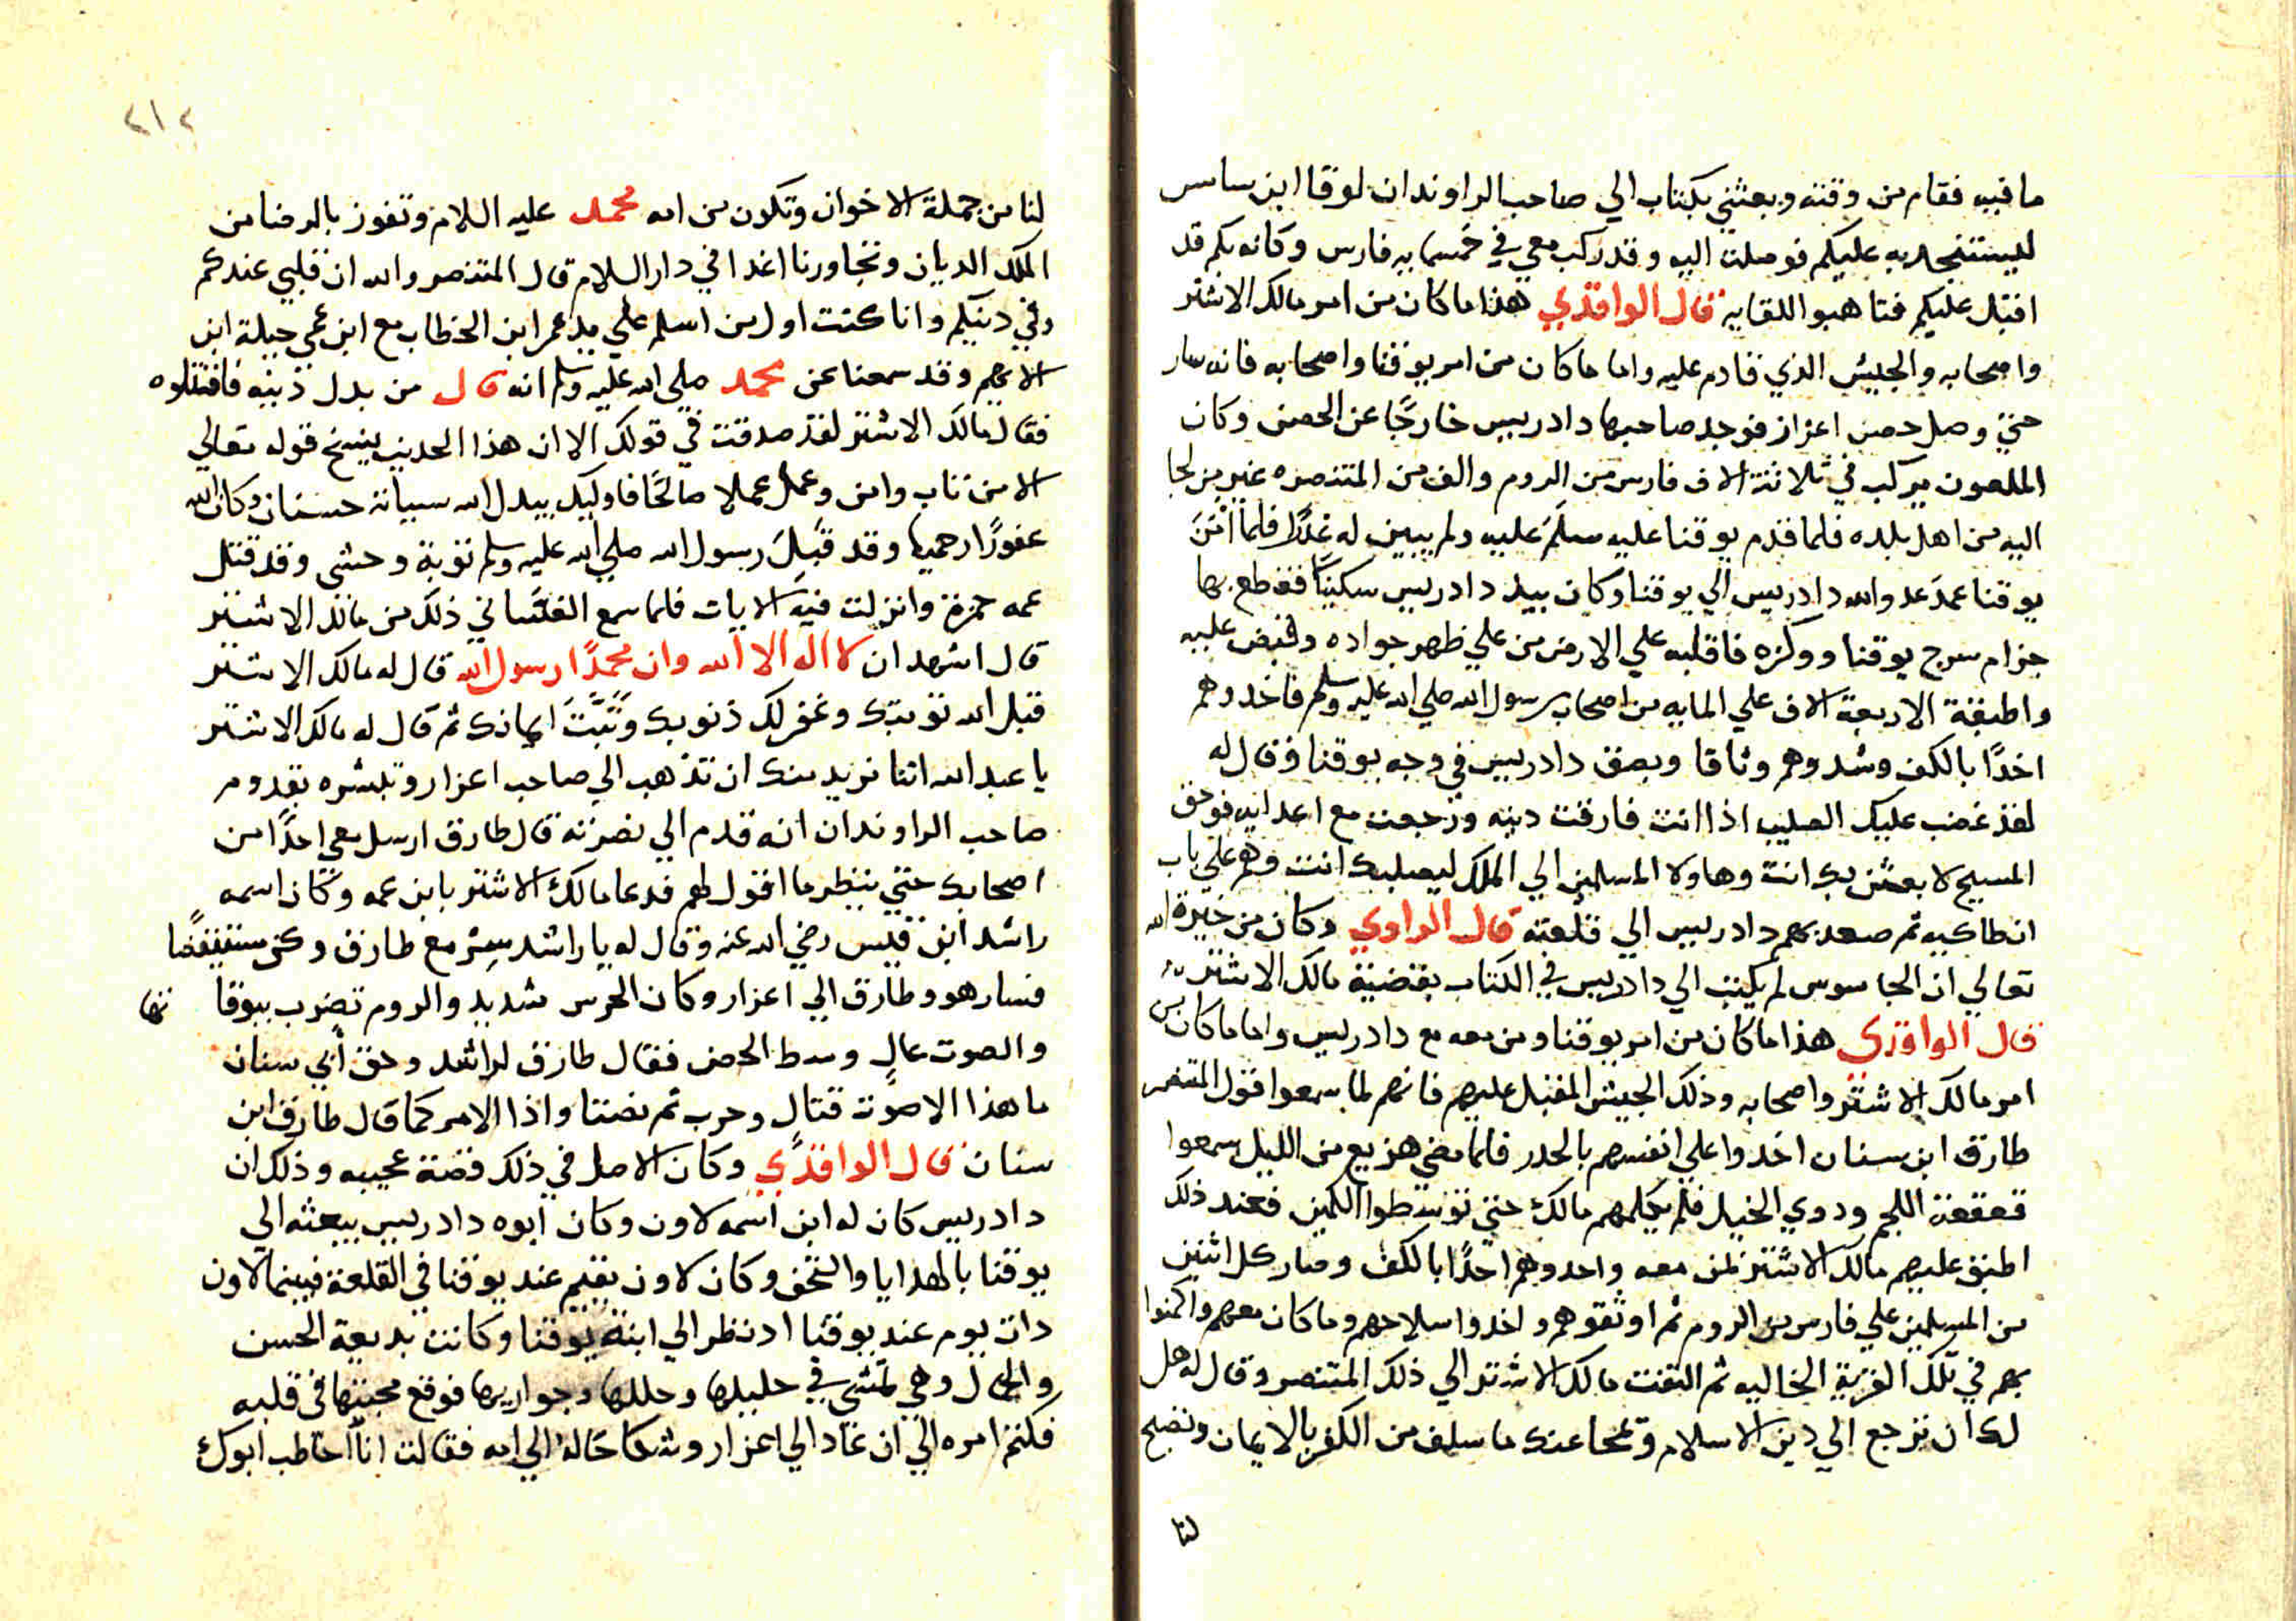 ما فيه فقام من وقته وبعثني بكتاب الي صاحب الراوندان لوقا ابن ساس
ليستنجد به عليكم فوصلت اليه وقد ركب معي في خمسمايه فارس وكانه بكم قد
اقبل عليكم فتاهبوا للقايه قال الواقدي هذا ما كان من امر مالك الاشتر
واصحابه والجيش الذي قادم عليه واما ما كان من امر يوقنا واصحابه فانه سار
حتي وصل حصن اعزاز فوجد صاحبها دادريس خارجًا عن الحصن وكان
الملعون يركب في ثلاثة الاف فارس من الروم والف من المتنصره غير من لجا
اليه من اهل بلده فلما قدم يوقنا عليه سلَمَ عليه ولم يبين له غدرًا فلما
يوقنا عمدَ عدو الله دادريس الي يوقنا وكان بيد دادريس سكينًا فقطع بها
حزام سرج يوقنا ووكزه فاقلبه علي الارض من علي ظهر جواده وقبض عليه
واطبقة الاربعة الاف علي المايه من اصحاب رسول الله صلي الله عليه وسلم فاخدوهم
اخدًا بالكف وشدوهم وثاقا وبصق دادريس في وجه يوقنا وقال له
لقد غضب عليك الصليب اذا انت فارقت دينه ورجعت مع اعدايه فوحق
المسيح لا بعثن بك انت وهاولا المسلمين الي الملك ليصلبك انت وهم علي باب
انطاكيه ثم صعد بهم دادريس الي قلعته قال الراوي وكان من خيرة الله
تعالي ان الجاسوس لم يكتب الي دادريس في الكتاب بقضية مالك الاشتر
قال الواقدي هذا ما كان من امر يوقنا ومن معه مع دادريس واما ما كان من
امر مالك الاشتر واصحابه وذلك الجيش المقبل عليهم فانهم لما سمعوا قول المتنصر
طارق ابن سنان اخدوا علي انفسهم بالحدر فلما مضي هزيع من الليل سمعوا
قعقعة اللجم ودوي الخيل فلم يكلمهم مالك حتي توسطوا الكمين فعند ذلك
اطبق عليهم مالك الاشتر بمن معه واخدوهم اخدًا بالكف وصار كل اثنين
من المسلمين علي فارس من الروم ثم اوثقوهم واخدوا سلاحهم وما كان معهم واكمنوا
بهم في تلك القرية الخاليه ثم التفت مالك الاشتر الي ذلك المتنصر وقال له هل
لك ان ترجع الي دين الاسلام وتمحا عنك ما سلف من الكفر بالايمان وتصبح
لنا
٢١٢
لنا من جملة الاخوان وتكون من امه محمد عليه السلام وتفوز بالرضا من
الملك الديان وتجاورنا اغدا في دار السلام قال المتنصر والله ان قلبي عندكم
وفي دينكم وانا كنت اول من اسلم علي يد عمر ابن الخطاب مع ابن عمي جبلة ابن
الايهم وقد سمعنا عن محمد صلي الله عليه وسلم انه قال من بدل دينه فاقتلوه
فقال مالك الاشتر لقد صدقت في قولك الا ان هذا الحديث ينسخ قوله تعالي
الا من تاب وامن وعمل عملا صالحًا فاوليك يبدل الله سيياته حسنات وكان الله
غفورًا رحيما وقد قَبِلَ رسول الله صلي الله عليه وسلم توبة وحشي وقد قتل
عمه حمزة وانزلت فيه الايات فلما سمع الغسّاني ذلك من مالك الاشتر
قال اشهد ان لا اله الا الله وان محمدًا رسول الله قال له مالك الاشتر
قبل الله توبتك وغفر لك ذنوبك وثَبَّتَ ايمانك ثم قال له مالك الاشتر
يا عبد الله اننا نريد منك ان تذهب الي صاحب اعزاز وتبشره بقدوم
صاحب الراوندان انه قدم الي نصرته قال طارق ارسل معي احدًا من
اصحابك حتي ينظر ما اقول لهم فدعا مالك الاشتر بابن عمه وكان اسمه
راشد ابن قيس رضي الله عنه وقال له يا راشد سِرْ مع طارق وكن مستيقضًا
فسار هو وطارق الي اعزاز وكان الحرس شديد والروم تضرب ببوقاتها
والصوت عالٍ وسط الحصن فقال طارق لراشد وحق أبي سنان
ما هذا الا صوت قتالٍ وحرب ثم نصتنا واذا الامر كما قال طارق ابن
سنان قال الواقدي وكان الاصل في ذلك قصة عجيبه وذلك ان
دادريس كان له ابن اسمه لاون وكان ابوه دادريس يبعثه الي
يوقنا بالهدايا والتحف وكان لاون يقيم عند يوقنا في القلعة فبينما لاون
دات يوم عند يوقنا اد نظر الي ابنة يوقنا وكانت بديعة الحسن
والجمال وهي تمشي في حليلها وحللها وجواريها فوقع محبتها في قلبه
فكتم امره الي ان عاد الي اعزاز وشكا حاله الي امه فقالت انا اخاطب ابوك